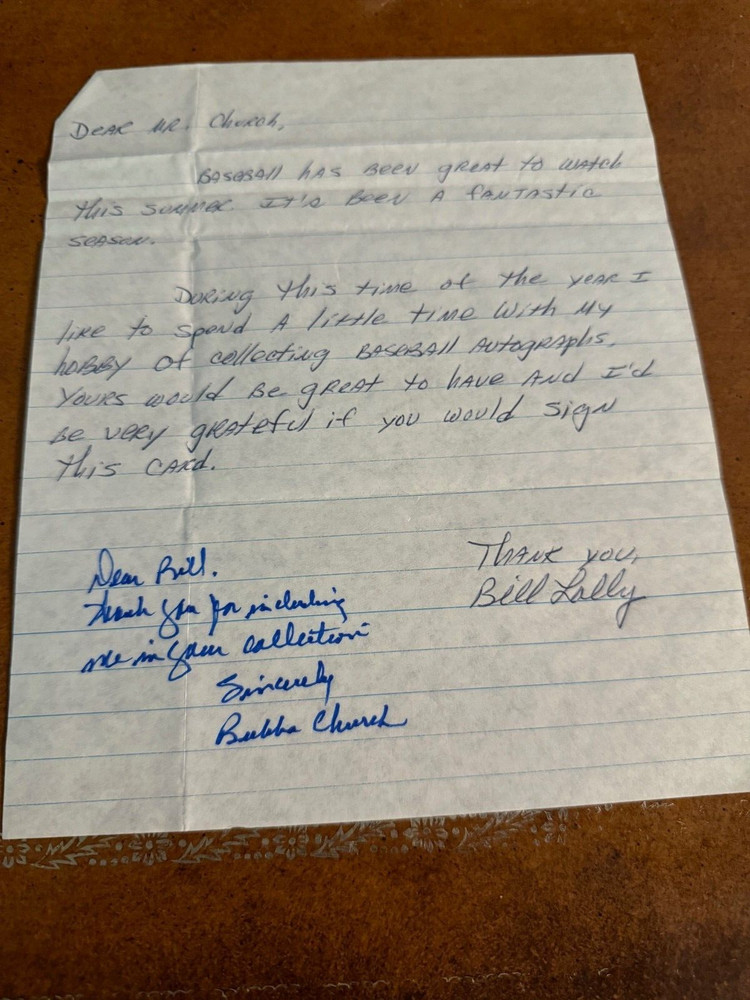 Dear Mr. Church,
Baseball has been great to watch
this summer. It's been a fantastic
season.
During this time of the year I
like to spend a little time with my
hobby of collecting baseball autographs.
Yours would be great to have and I'd
be very grateful if you would sign
this card.
Thank you,
Bill Lally
Dear Bill.
Thank you for including
me in your collection
Sincerely
Bubba Church